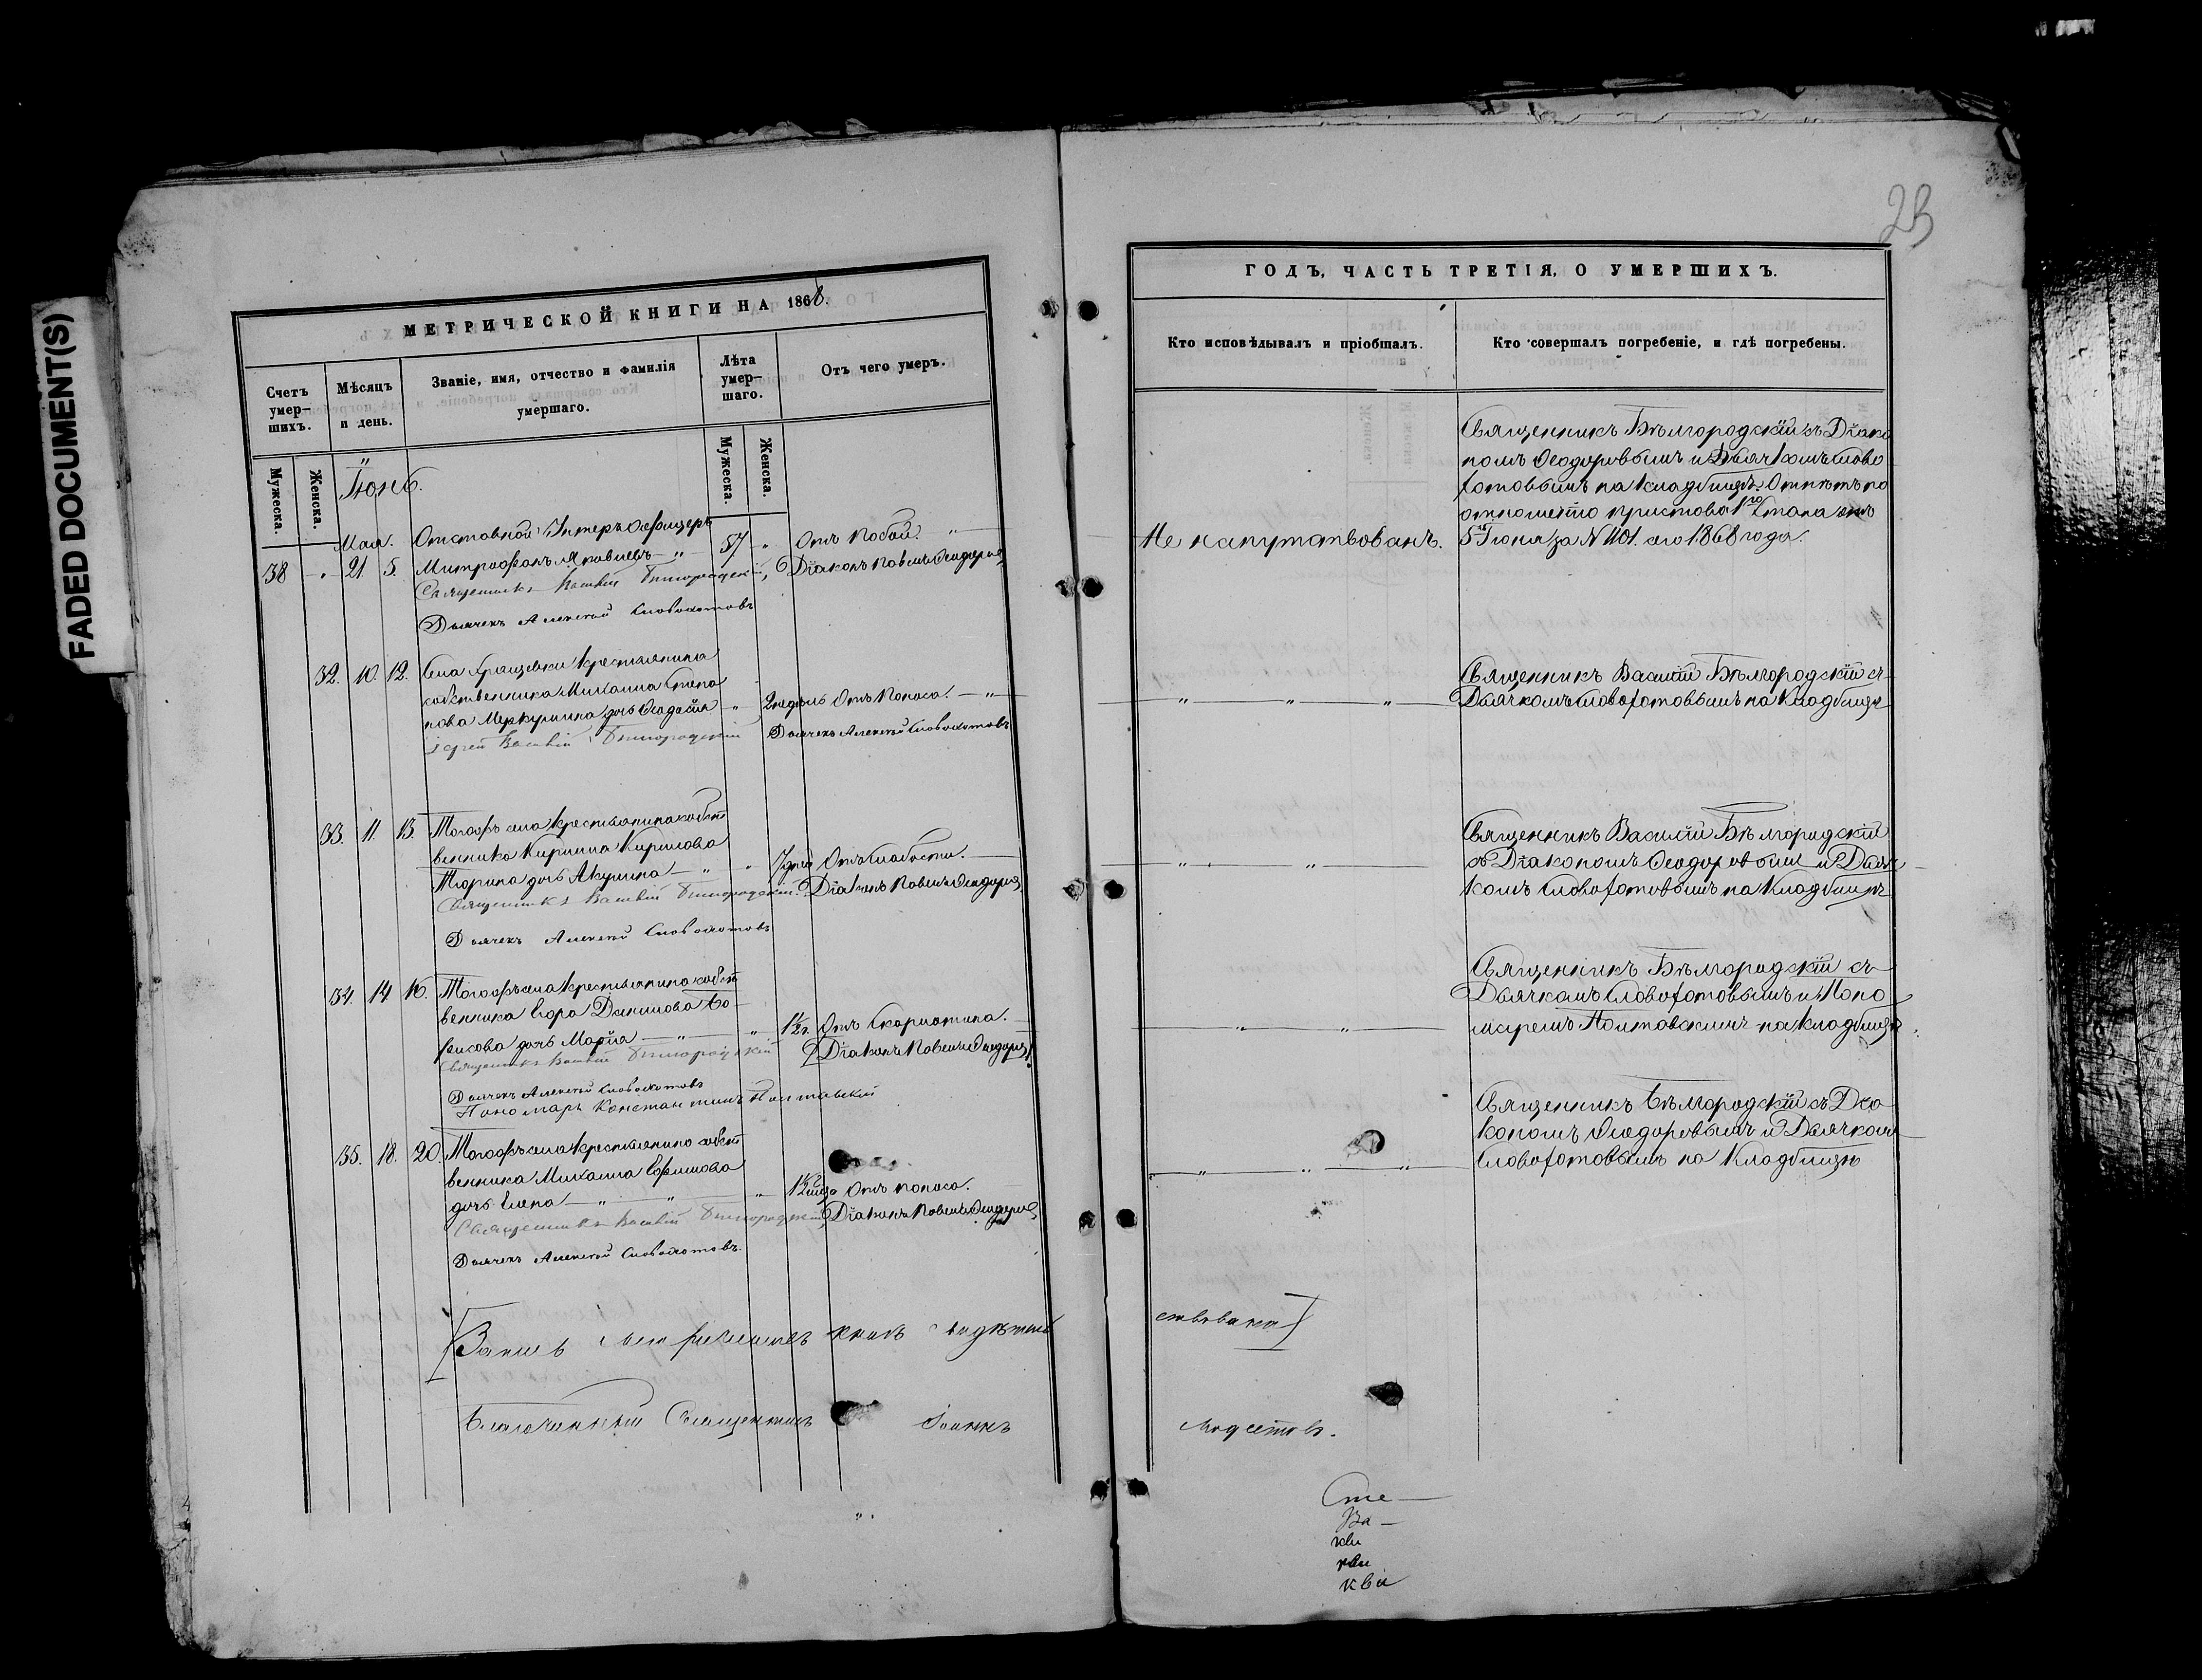 FADED DOCUMENT(S)
23
МЕТРИЧЕСКОЙ КНИГИ НА 1868.
Счетъ умер-шихъ.
Мѣсяцъ и день.
Званіе, имя, отчество и фамилія умершаго.
Лѣта умер-шаго.
Отъ чего умеръ.
Мужеска.
Женска.
Мужеска.
Женска.
Іюнь.
Мая. Отставной Унтеръ Офицеръ
38 - " - 21. 5. Митрофанъ Яковлевъ - " - 57 " Отъ побой. "
Священникъ Василій Бѣлгородскій, Діаконъ Павелъ Феодоровъ
Дьячекъ Алексѣй Словохотовъ
32. 10. 12. Села Грящевки крестьянина
собственника Михаила Степа
нова Меркулина дочь Феодосія " 2 недѣль Отъ поноса. - " -
іерей Василій Бѣлгородскій Дьячекъ Алексѣй Словохотовъ
33. 11. 13. Тогожъ села крестьянина собст
венника Кирилла Кирилова
Тюрина дочь Акулина - " " 7 дней Отъ слабости.
Священникъ Василій Бѣлгородскій. Діаконъ Павелъ Феодоровъ
Дьячекъ Алексѣй Словохотовъ
34. 14. 16. Тогожъ села крестьянина собст
венника Егора Данилова Бо
рисова дочь Марія - " - " 1½ г. Отъ скарлатина.
Священникъ Василій Бѣлгородскій Діаконъ Павелъ Феодоровъ
Дьячекъ Алексѣй Словохотовъ
Пономарь Константинъ Полтавскій
35. 18. 20. Тогожъ села крестьянина собст
венника Михаила Ефимова
дочь Елена - " - " - " 1½ Отъ поноса.
Священникъ Василій Бѣлгородскій Діаконъ Павелъ Феодоровъ
Дьячекъ Алексѣй Словохотовъ.
Запись метрическихъ книгъ свидѣтель
Благочинный Священникъ Іоаннъ
ГОДЪ, ЧАСТЬ ТРЕТІЯ, О УМЕРШИХЪ.
Кто исповѣдывалъ и пріобщалъ.
Кто совершалъ погребеніе, и гдѣ погребены.
Священникъ Бѣлгородскій съ Діако
номъ Феодоровымъ и Дьячкомъ Слово
хотовымъ на кладбищѣ. Отпѣтъ по
отношенію пристава 1го Стана отъ
Не напутствованъ. 5го Іюня за N 1101. сего 1868 года.
Священникъ Василій Бѣлгородскій съ
" " " Дьячкомъ Словохотовымъ на кладбищѣ
Священникъ Василій Бѣлгородскій
" " съ Діакономъ Феодоровымъ и Дьяч
комъ Словохотовымъ на кладбищѣ
Священникъ Бѣлгородскій съ
Дьячкомъ Словохотовымъ и Поно
" " маремъ Полтавскимъ на кладбищѣ
Священникъ Бѣлгородскій съ Діа
кономъ Феодоровымъ и Дьячкомъ
" " " Словохотовымъ на кладбищѣ
ствовалъ
Модестовъ.